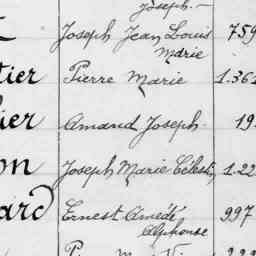 Joseph.-
Joseph Jean Louis 759
Marie
tier Pierre Marie 1.361
lier Amand Joseph. 19
on Joseph Marie Célestin 1.22
ard Ernest Amédé 997
Alphonse